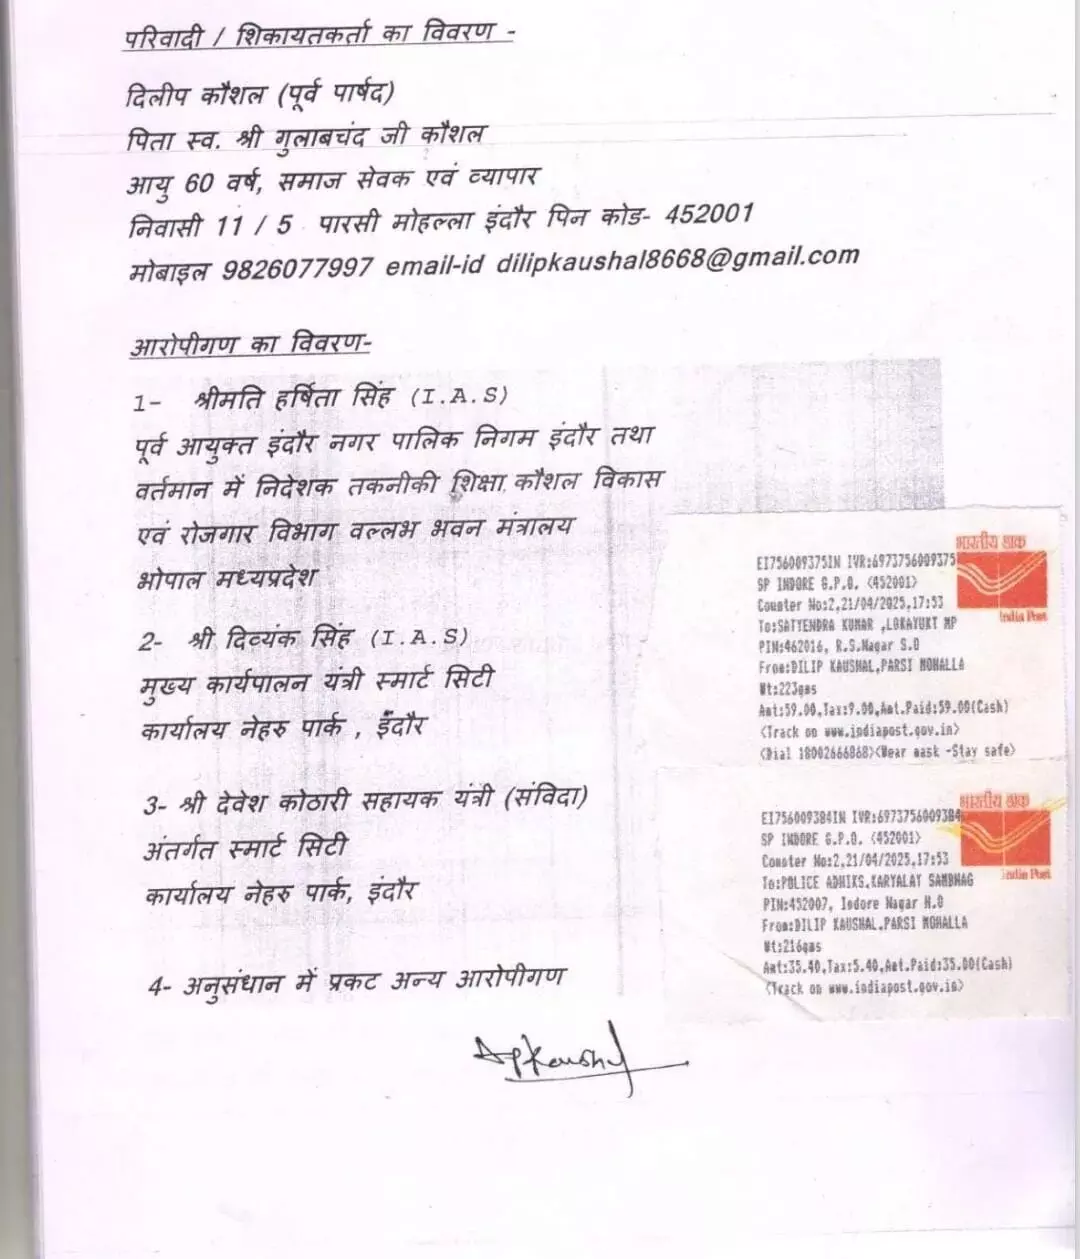 परिवादी / शिकायतकर्ता का विवरण -
दिलीप कौशल (पूर्व पार्षद)
पिता स्व. श्री गुलाबचंद जी कौशल
आयु 60 वर्ष, समाज सेवक एवं व्यापार
निवासी 11 / 5 पारसी मोहल्ला इंदौर पिन कोड- 452001
मोबाइल 9826077997 email-id dilipkaushal8668@gmail.com
आरोपीगण का विवरण-
1- श्रीमति हर्षिता सिंह (I.A.S)
पूर्व आयुक्त इंदौर नगर पालिक निगम इंदौर तथा
वर्तमान में निदेशक तकनीकी शिक्षा, कौशल विकास
एवं रोजगार विभाग वल्लभ भवन मंत्रालय
भोपाल मध्यप्रदेश
2- श्री दिव्यंक सिंह (I.A.S)
मुख्य कार्यपालन यंत्री स्मार्ट सिटी
कार्यालय नेहरु पार्क , इंदौर
3- श्री देवेश कोठारी सहायक यंत्री (संविदा)
अंतर्गत स्मार्ट सिटी
कार्यालय नेहरु पार्क, इंदौर
4- अनुसंधान में प्रकट अन्य आरोपीगण
भारतीय डाक
India Post
EI756009375IN IVR:6973756009375
SP INDORE G.P.O. <452001>
Counter No:2,21/04/2025,17:53
To:SATYENDRA KUMAR ,LOKAYUKT MP
PIN:462016, R.S.Nagar S.O
From:DILIP KAUSHAL,PARSI MOHALLA
Wt:223gms
Amt:59.00,Tax:9.00,Amt.Paid:59.00(Cash)
<Track on www.indiapost.gov.in>
<Dial 18002666868><Wear mask -Stay safe>
भारतीय डाक
India Post
EI756009384IN IVR:6973756009384
SP INDORE G.P.O. <452001>
Counter No:2,21/04/2025,17:53
To:POLICE ADHIKS,KARYALAY SAMBHAG
PIN:452007, Indore Nagar H.O
From:DILIP KAUSHAL,PARSI MOHALLA
Wt:216gms
Amt:35.40,Tax:5.40,Amt.Paid:35.00(Cash)
<Track on www.indiapost.gov.in>